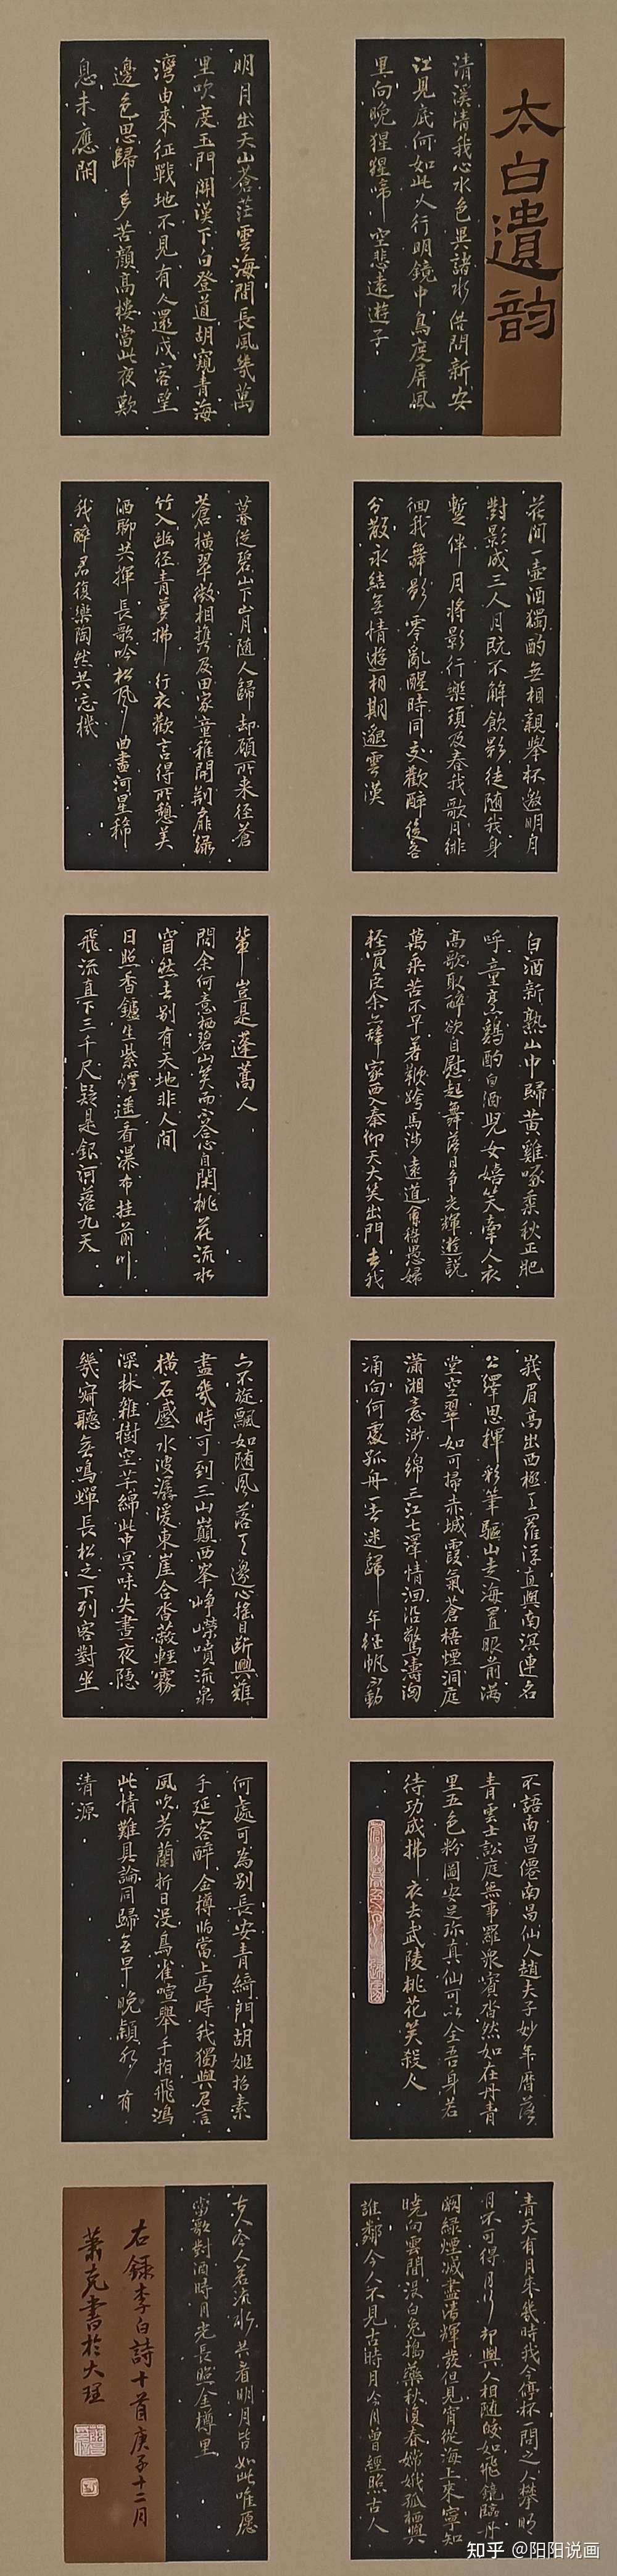 太白遺韵
清溪清我心水色異諸水借問新安
江見底何如此人行明鏡中鳥度屏風
里向晚猩猩啼空悲遠遊子
明月出天山蒼茫雲海間長風幾萬
里吹度玉門關漢下白登道胡窺青海
灣由來征戰地不見有人還戍客望
邊色思歸多苦顏高樓當此夜歎
息未應閑
花間一壺酒獨酌無相親舉杯邀明月
對影成三人月既不解飲影徒隨我身
暫伴月將影行樂須及春我歌月徘
徊我舞影零亂醒時同交歡醉後各
分散永結無情遊相期邈雲漢
暮從碧山下山月隨人歸却顧所来徑蒼
蒼橫翠微相攜及田家童稚開荊扉緑
竹入幽徑青蘿拂行衣歡言得所憩美
酒聊共揮長歌吟松風曲盡河星稀
我醉君復樂陶然共忘機
白酒新熟山中歸黃雞啄黍秋正肥
呼童烹鷄酌白酒兒女嬉笑牽人衣
高歌取醉欲自慰起舞落日爭光輝遊說
萬乘苦不早著鞭跨馬涉遠道會稽愚婦
輕買臣余亦辭家西入秦仰天大笑出門去我
輩豈是蓬蒿人
問余何意栖碧山笑而不答心自閑桃花流水
窅然去別有天地非人間
日照香鑪生紫煙遥看瀑布挂前川
飛流直下三千尺疑是銀河落九天
峩眉高出西極天羅浮直與南溟連名
公繹思揮彩筆驅山走海置眼前滿
堂空翠如可掃赤城霞氣蒼梧煙洞庭
瀟湘意渺綿三江七澤情洄沿驚濤洶
涌向何處孤舟一去迷歸年征帆不動
亦不旋飄如隨風落天邊心搖目斷興難
盡幾時可到三山巔西峯崢嶸噴流泉
橫石蹙水波潺湲東崖合沓蔽輕霧
深林雜樹空芊綿此中冥昧失晝夜隱
幾寂聽無鳴蟬長松之下列客對坐
不語南昌僊南昌仙人趙夫子妙年歷落
青雲士訟庭無事羅衆賓杳然如在丹青
里五色粉圖安足珍真仙可以全吾身若
待功成拂衣去武陵桃花笑殺人
何處可為別長安青綺門胡姬招素
手延客醉金樽臨當上馬時我獨與君言
風吹芳蘭折日沒鳥雀喧舉手指飛鴻
此情難具論同歸無早晚潁水有
清源
青天有月来幾時我今停杯一問之人攀明
月不可得月行却與人相隨皎如飛鏡臨丹
闕綠煙滅盡清輝發但見宵從海上來寧知
曉向雲間沒白兔搗藥秋復春嫦娥孤栖與
誰鄰今人不見古時月今月曾經照古人
古人今人若流水共看明月皆如此唯願
當歌對酒時月光長照金樽里
右錄李白詩十首庚子十二月
蕭克書於大理
知乎 @阳阳说画